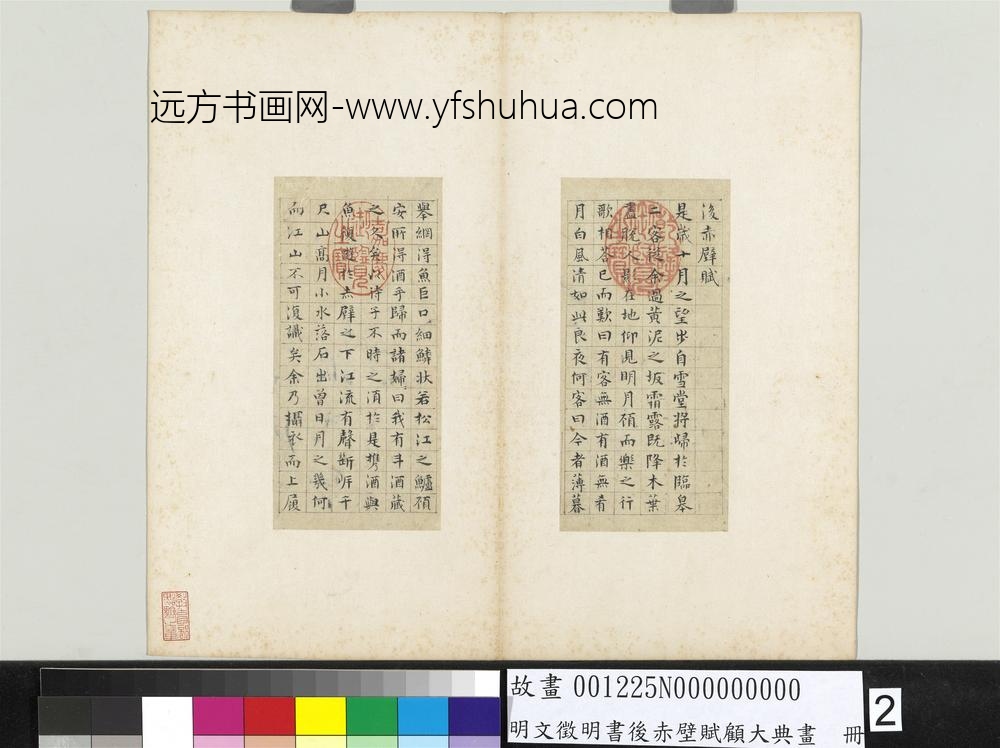 远方书画网-www.yfshuhua.com
後赤壁賦
是歲十月之望步自雪堂將歸於臨皋
二客從余過黃泥之坂霜露既降木葉
盡脫人影在地仰見明月顧而樂之行
歌相答已而歎曰有客無酒有酒無肴
月白風清如此良夜何客曰今者薄暮
舉網得魚巨口細鱗狀若松江之鱸顧
安所得酒乎歸而諸婦曰我有斗酒藏
之久矣以待子不時之須於是攜酒與
魚復遊於赤壁之下江流有聲斷岸千
尺山高月小水落石出曾日月之幾何
而江山不可復識矣余乃攝衣而上履
故畫 001225N000000000
明文徵明書後赤壁賦顧大典畫 冊
2